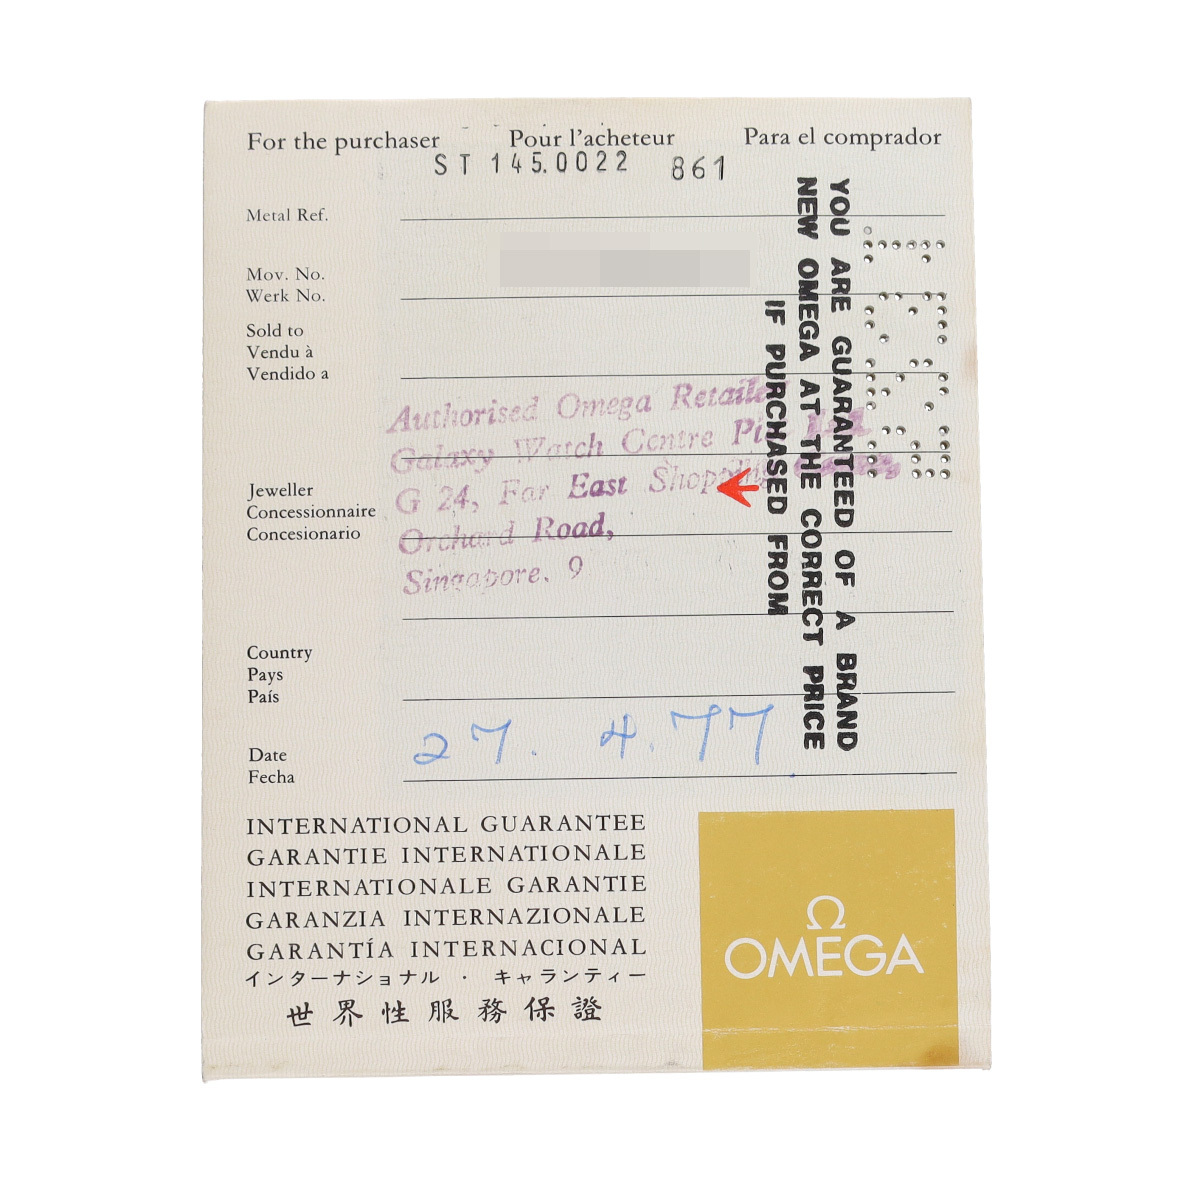 For the purchaser Pour l'acheteur Para el comprador
ST 145.0022 861
Metal Ref.
Mov. No.
Werk No.
Sold to
Vendu à
Vendido a
Authorised Omega Retailer
Galaxy Watch Centre Pte Ltd.
G 24, Far East Shopping Centre,
Orchard Road,
Singapore. 9
Jeweller
Concessionnaire
Concesionario
YOU ARE GUARANTEED OF A BRAND
NEW OMEGA AT THE CORRECT PRICE
IF PURCHASED FROM
Country
Pays
País
Date
Fecha
27. 4.77
INTERNATIONAL GUARANTEE
GARANTIE INTERNATIONALE
INTERNATIONALE GARANTIE
GARANZIA INTERNAZIONALE
GARANTÍA INTERNACIONAL
インターナショナル・キャランティー
世界性服務保證
Ω
OMEGA